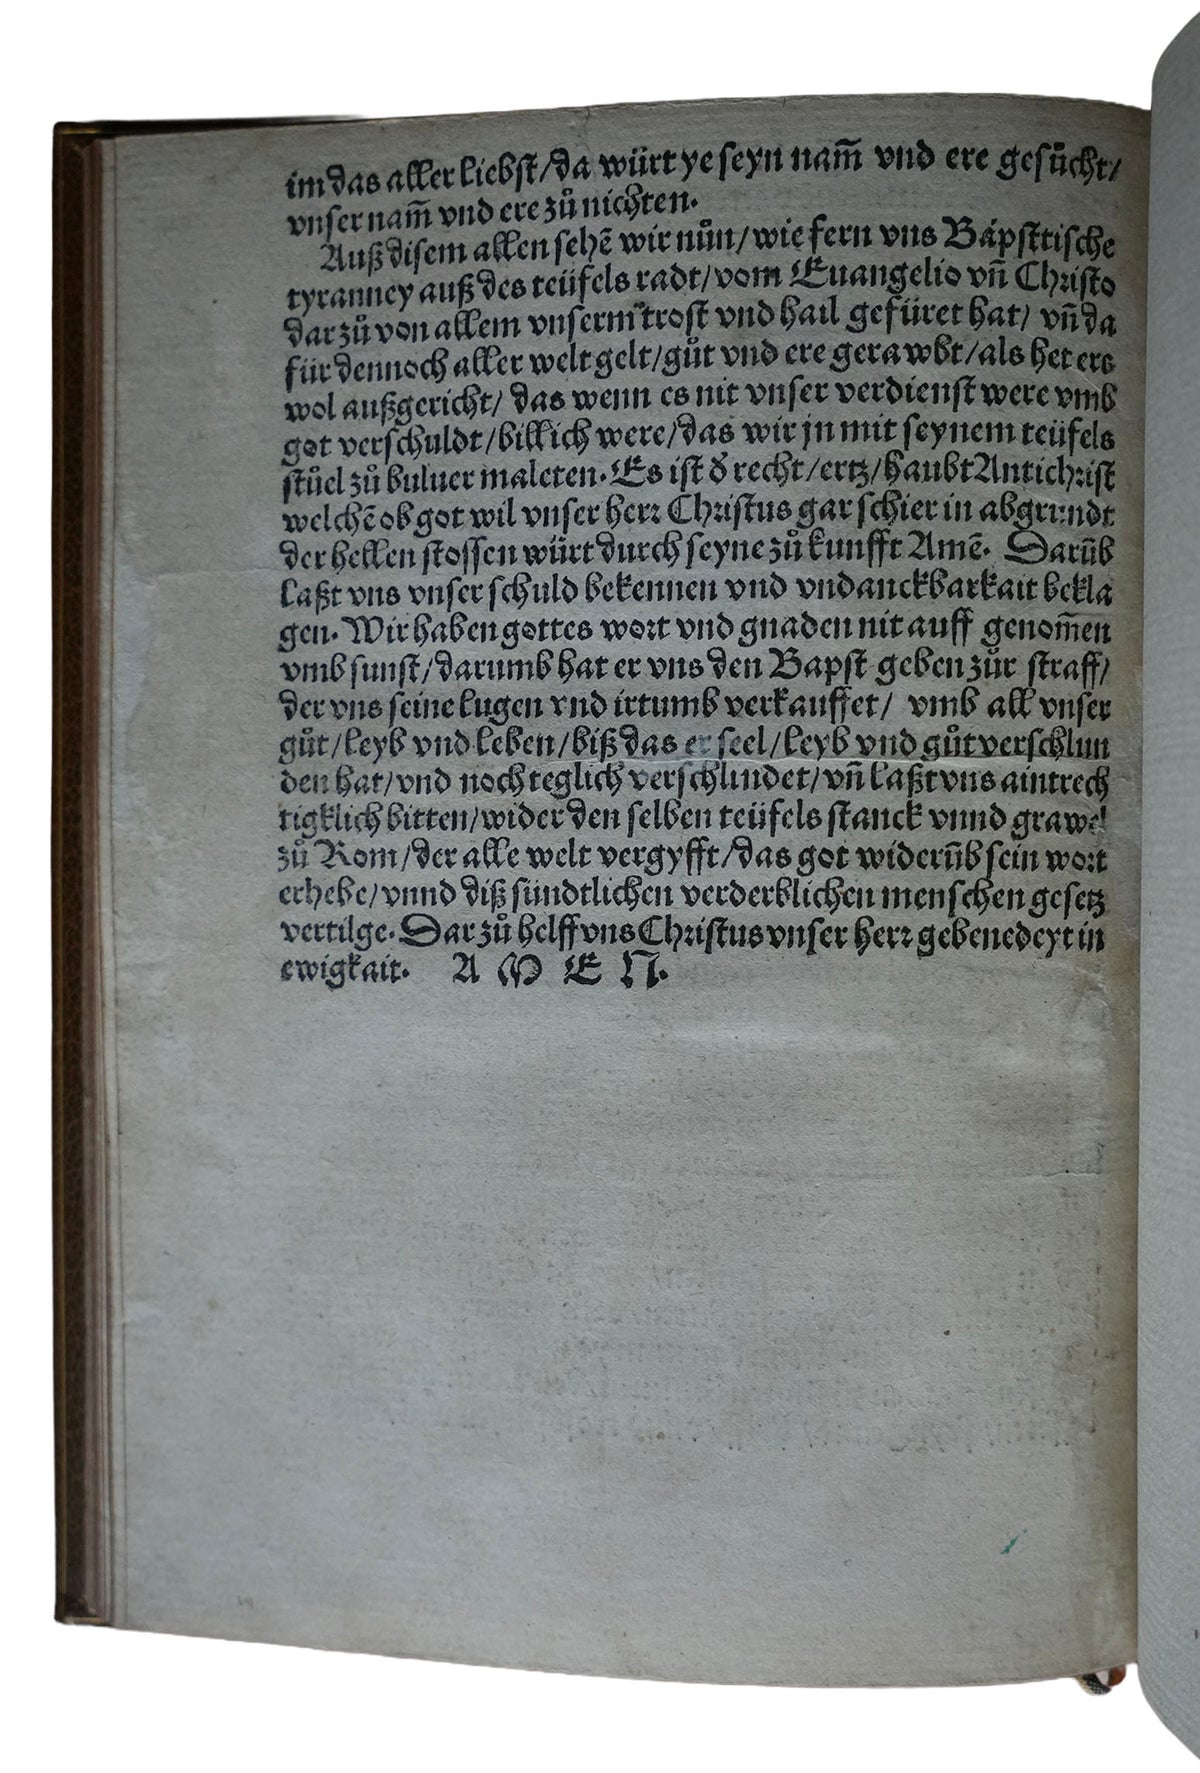 im das aller liebst/da würt ye seyn nam̃ vnd ere gesůcht/
vnser nam̃ vnd ere zů nichten.
Auß disem allen sehẽ wir nůn/wie fern vns Bäpsttische
tyranney auß des teüfels radt/vom Euangelio vñ Christo
dar zů von allem vnserm trost vnd hail gefüret hat/ vñ da
für dennoch aller welt gelt/gůt vnd ere gerawbt/als het ers
wol außgericht/ das wenn es nit vnser verdienst were vmb
got verschuldt/billich were/das wir jn mit seynem teüfels
stůel zů buluer maleten. Es ist d̕ recht/ertz/haubt Antichrist
welchẽ ob got wil vnser herr Christus gar schier in abgrundt
der hellen stossen würt durch seyne zůkunfft Amẽ. Darũb
laßt vns vnser schuld bekennen vnd vndanckbarkait bekla
gen. Wir haben gottes wort vnd gnaden nit auff genom̃en
vmb sunst/darumb hat er vns den Bapst geben zůr straff/
der vns seine lugen vnd irtumb verkauffet/ vmb all vnser
gůt/leyb vnd leben/biß das er seel/leyb vnd gůt verschlun
den hat/vnd noch teglich verschlindet/vñ laßt vns aintrech
tigklich bitten/wider den selben teüfels stanck vnnd grawel
zů Rom/der alle welt vergyfft/das got widerũb sein wort
erhebe/vnnd diß sündtlichen verderblichen menschen gesetz
vertilge. Dar zů helff vns Christus vnser herr gebenedeyt in
ewigkait. A M E N.